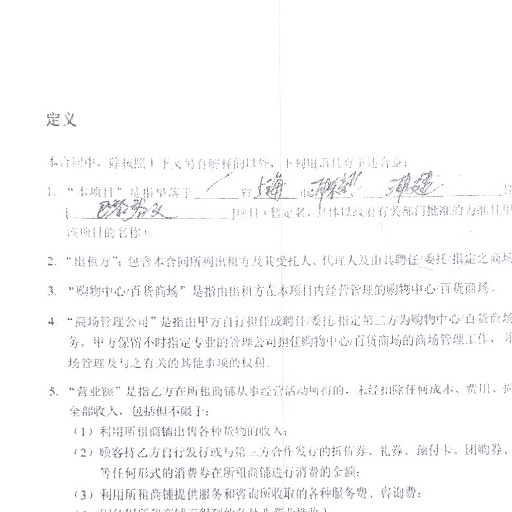 定义
本合同中，除按照上下文另有解释的以外，下列用语具有下述含意：
1. “本项目”是指坐落于 省 上海 市
项目（暂定名，具体以政府有关部门批准的为准且甲
该项目的名称）。
2. “出租方”：包含本合同所列出租方及其受托人、代理人及由其聘任/委托/指定之商场
3. “购物中心/百货商场”是指由出租方在本项目内经营管理的购物中心/百货商场。
4. “商场管理公司”是指由甲方自行担任或聘任/委托/指定第三方为购物中心/百货商场
务。甲方保留不时指定专业的管理公司担任购物中心/百货商场的商场管理工作，并
场管理及与之有关的其他事项的权利。
5. “营业额”是指乙方在所租商铺从事经营活动所有的，未经扣除任何成本、费用、
全部收入，包括但不限于：
（1）利用所租商铺出售各种货物的收入；
（2）顾客持乙方自行发行或与第三方合作发行的折价券、礼券、预付卡、团购券、
等任何形式的消费券在所租商铺进行消费的金额；
（3）利用所租商铺提供服务和咨询所收取的各种服务费、咨询费；